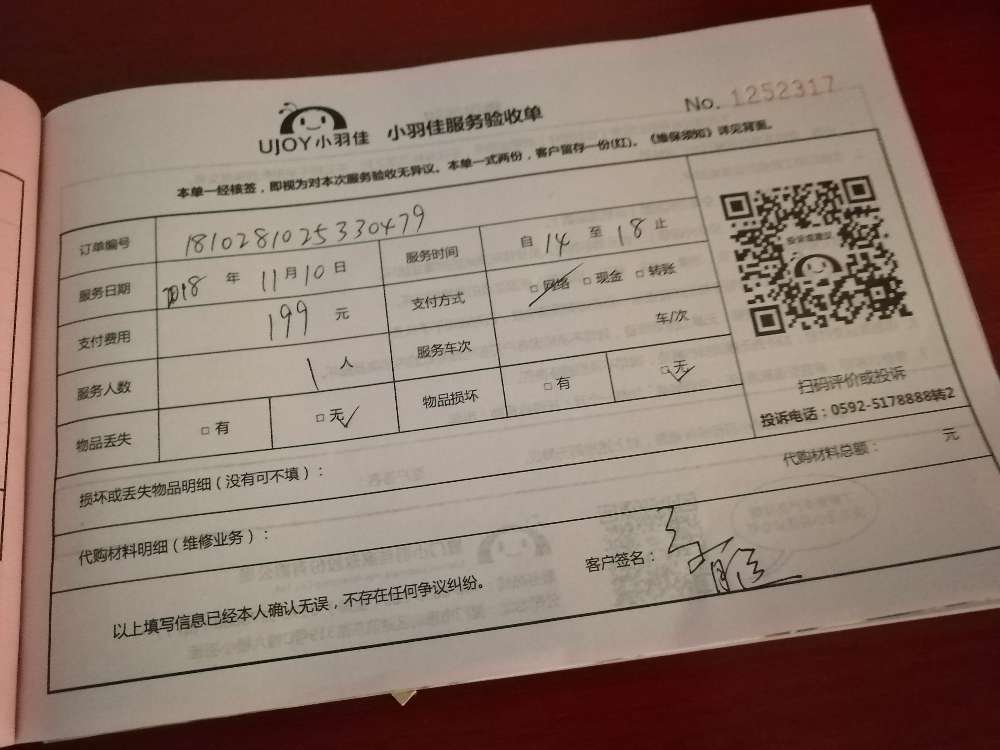 No. 1252317
UJOY小羽佳 小羽佳服务验收单
本单一经核签，即视为对本次服务验收无异议。本单一式两份，客户留存一份(红)。《维保须知》详见背面。
订单编号 1810281025330479
服务日期 2018 年 11 月 10 日 服务时间 自 14 至 18 止
支付费用 199 元 支付方式 □ 网络 □ 现金 □ 转账
服务人数 1 人 服务车次 车/次
物品丢失 □ 有 □ 无 ✓ 物品损坏 □ 有 □ 无 ✓
扫码评价或投诉
投诉电话：0592-5178888转2
损坏或丢失物品明细（没有可不填）：
代购材料明细（维修业务）： 代购材料总额： 元
以上填写信息已经本人确认无误，不存在任何争议纠纷。 客户签名：